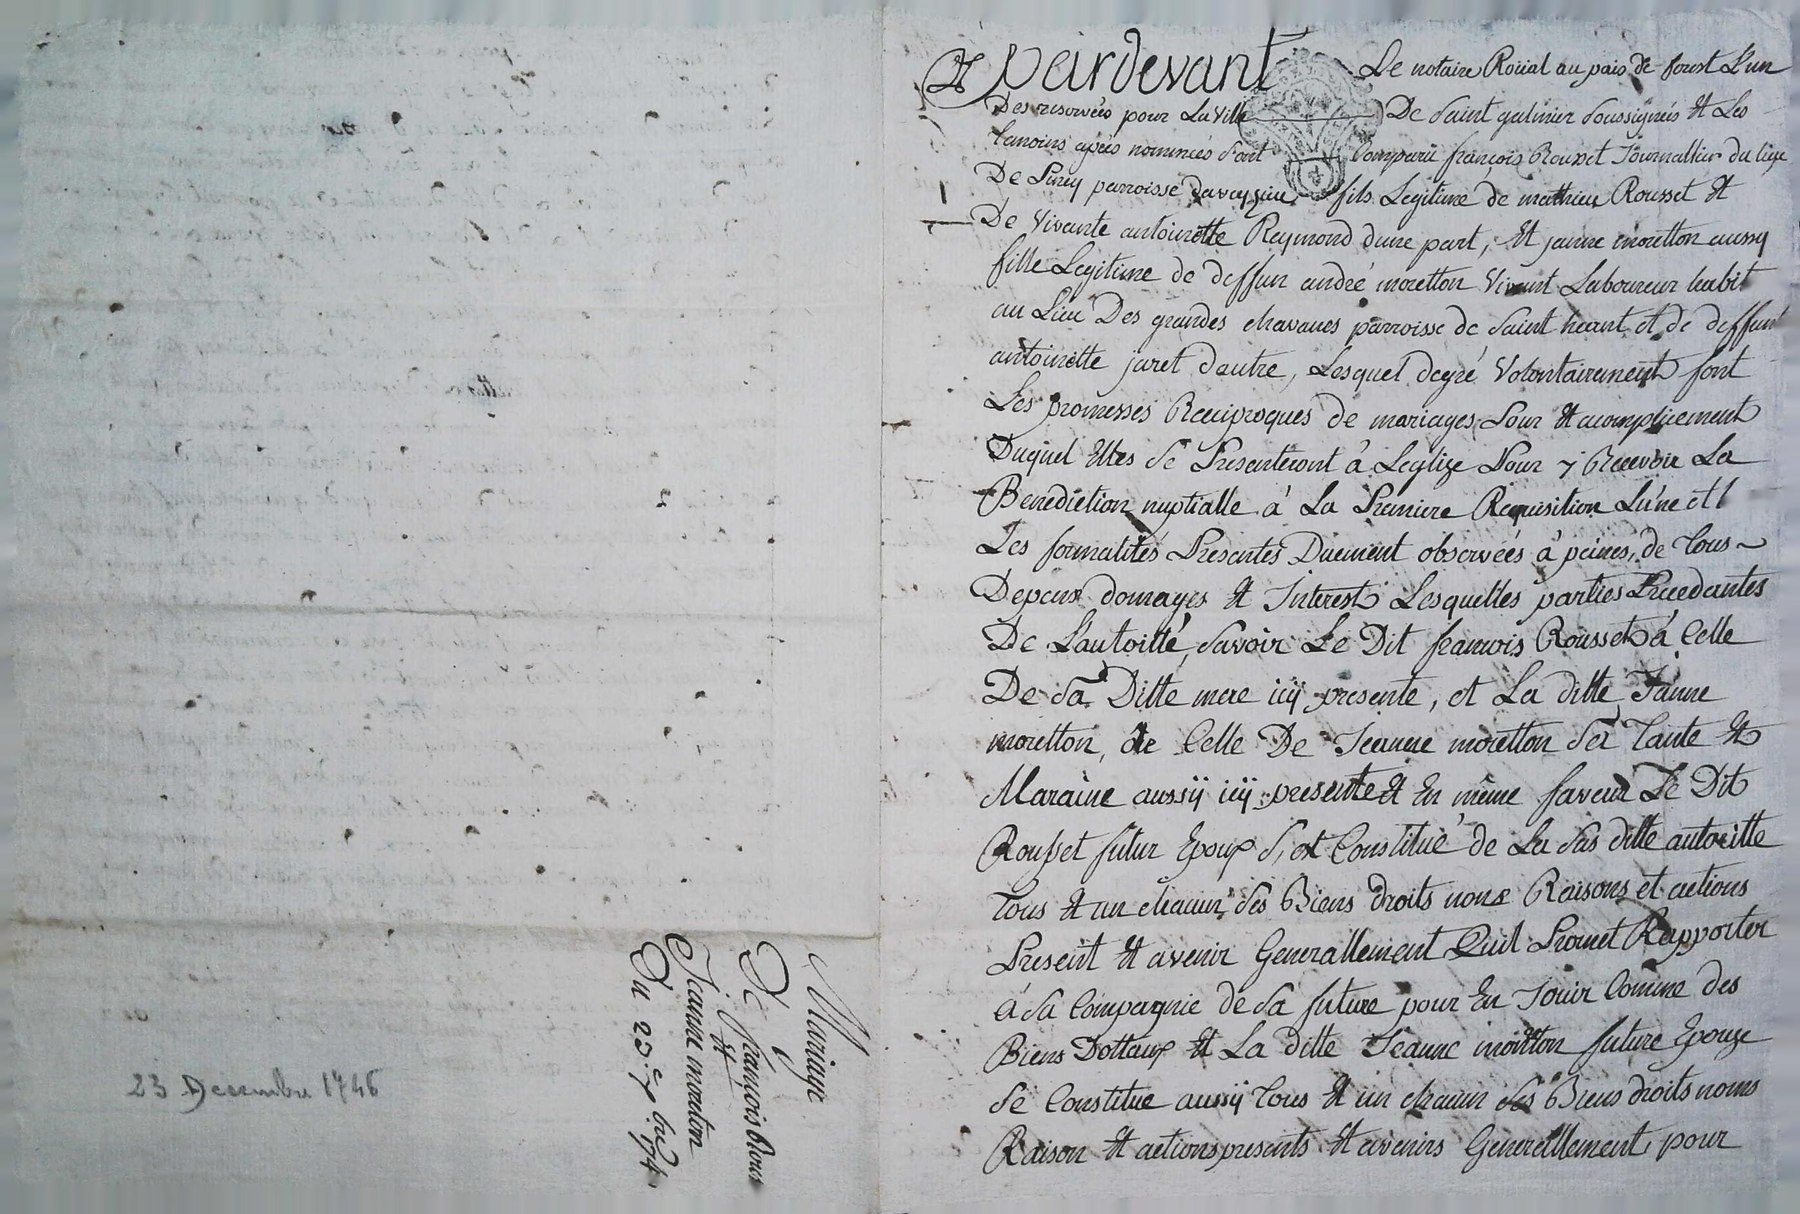 Mariage
De François Rous
Et
Jeanne moretton
Du 23e 9bre 174
23 Decembre 1746
Pardevant Le notaire Roiial au païs de forest L'un
Des reservées pour La Ville De Saint galmier soussignés Et Les
temoins apres nommés sont Comparü françois Rousset Journallier du lieu
De parroisse fils Legitime de mathieu Rousset Et
De Vivante antoinette Reymond d'une part, Et janne moretton aussy
fille Legitime de deffun andré moretton Vivant Laboureur habit
au Lieu Des grandes chavanes parroisse de Saint heant et de deffunt
antoinette jaret d'autre, Lesquel degré Volontairement font
Les promesses Reciproques de mariages, Pour Et acomplicement
Duquel Elles se Presenteront à Leglize Pour y Recevoir La
Benediction nuptialle à La Premiere Requisition L'une et l
Les formalités Presentes Duement observéés à peines, de tous
Depens domages Et Interest Lesquelles parties Procedantes
De L'autoitté, savoir Le Dit francois Rousset à Celle
De sa Ditte mere icÿ presente, et La ditte Janne
moretton, de Celle De Jeanne moretton sa tante Et
Maraine aussÿ icÿ presente Et En même faveur Le Dit
Rousset futur Epoux s'est Constitué de La sus ditte autoritte
tous Et un chacun ses Biens droits noms Raisons et actions
Present Et avenir Generallement Quil Promet Rapporter
à sa Compagnie de sa future pour En Jouir Comme des
Biens Dottaux Et La ditte Jeanne moretton future Epouze
se Constitue aussÿ tous Et un chacun ses Biens droits noms
Raison Et actions presents Et avenirs Generallement pour